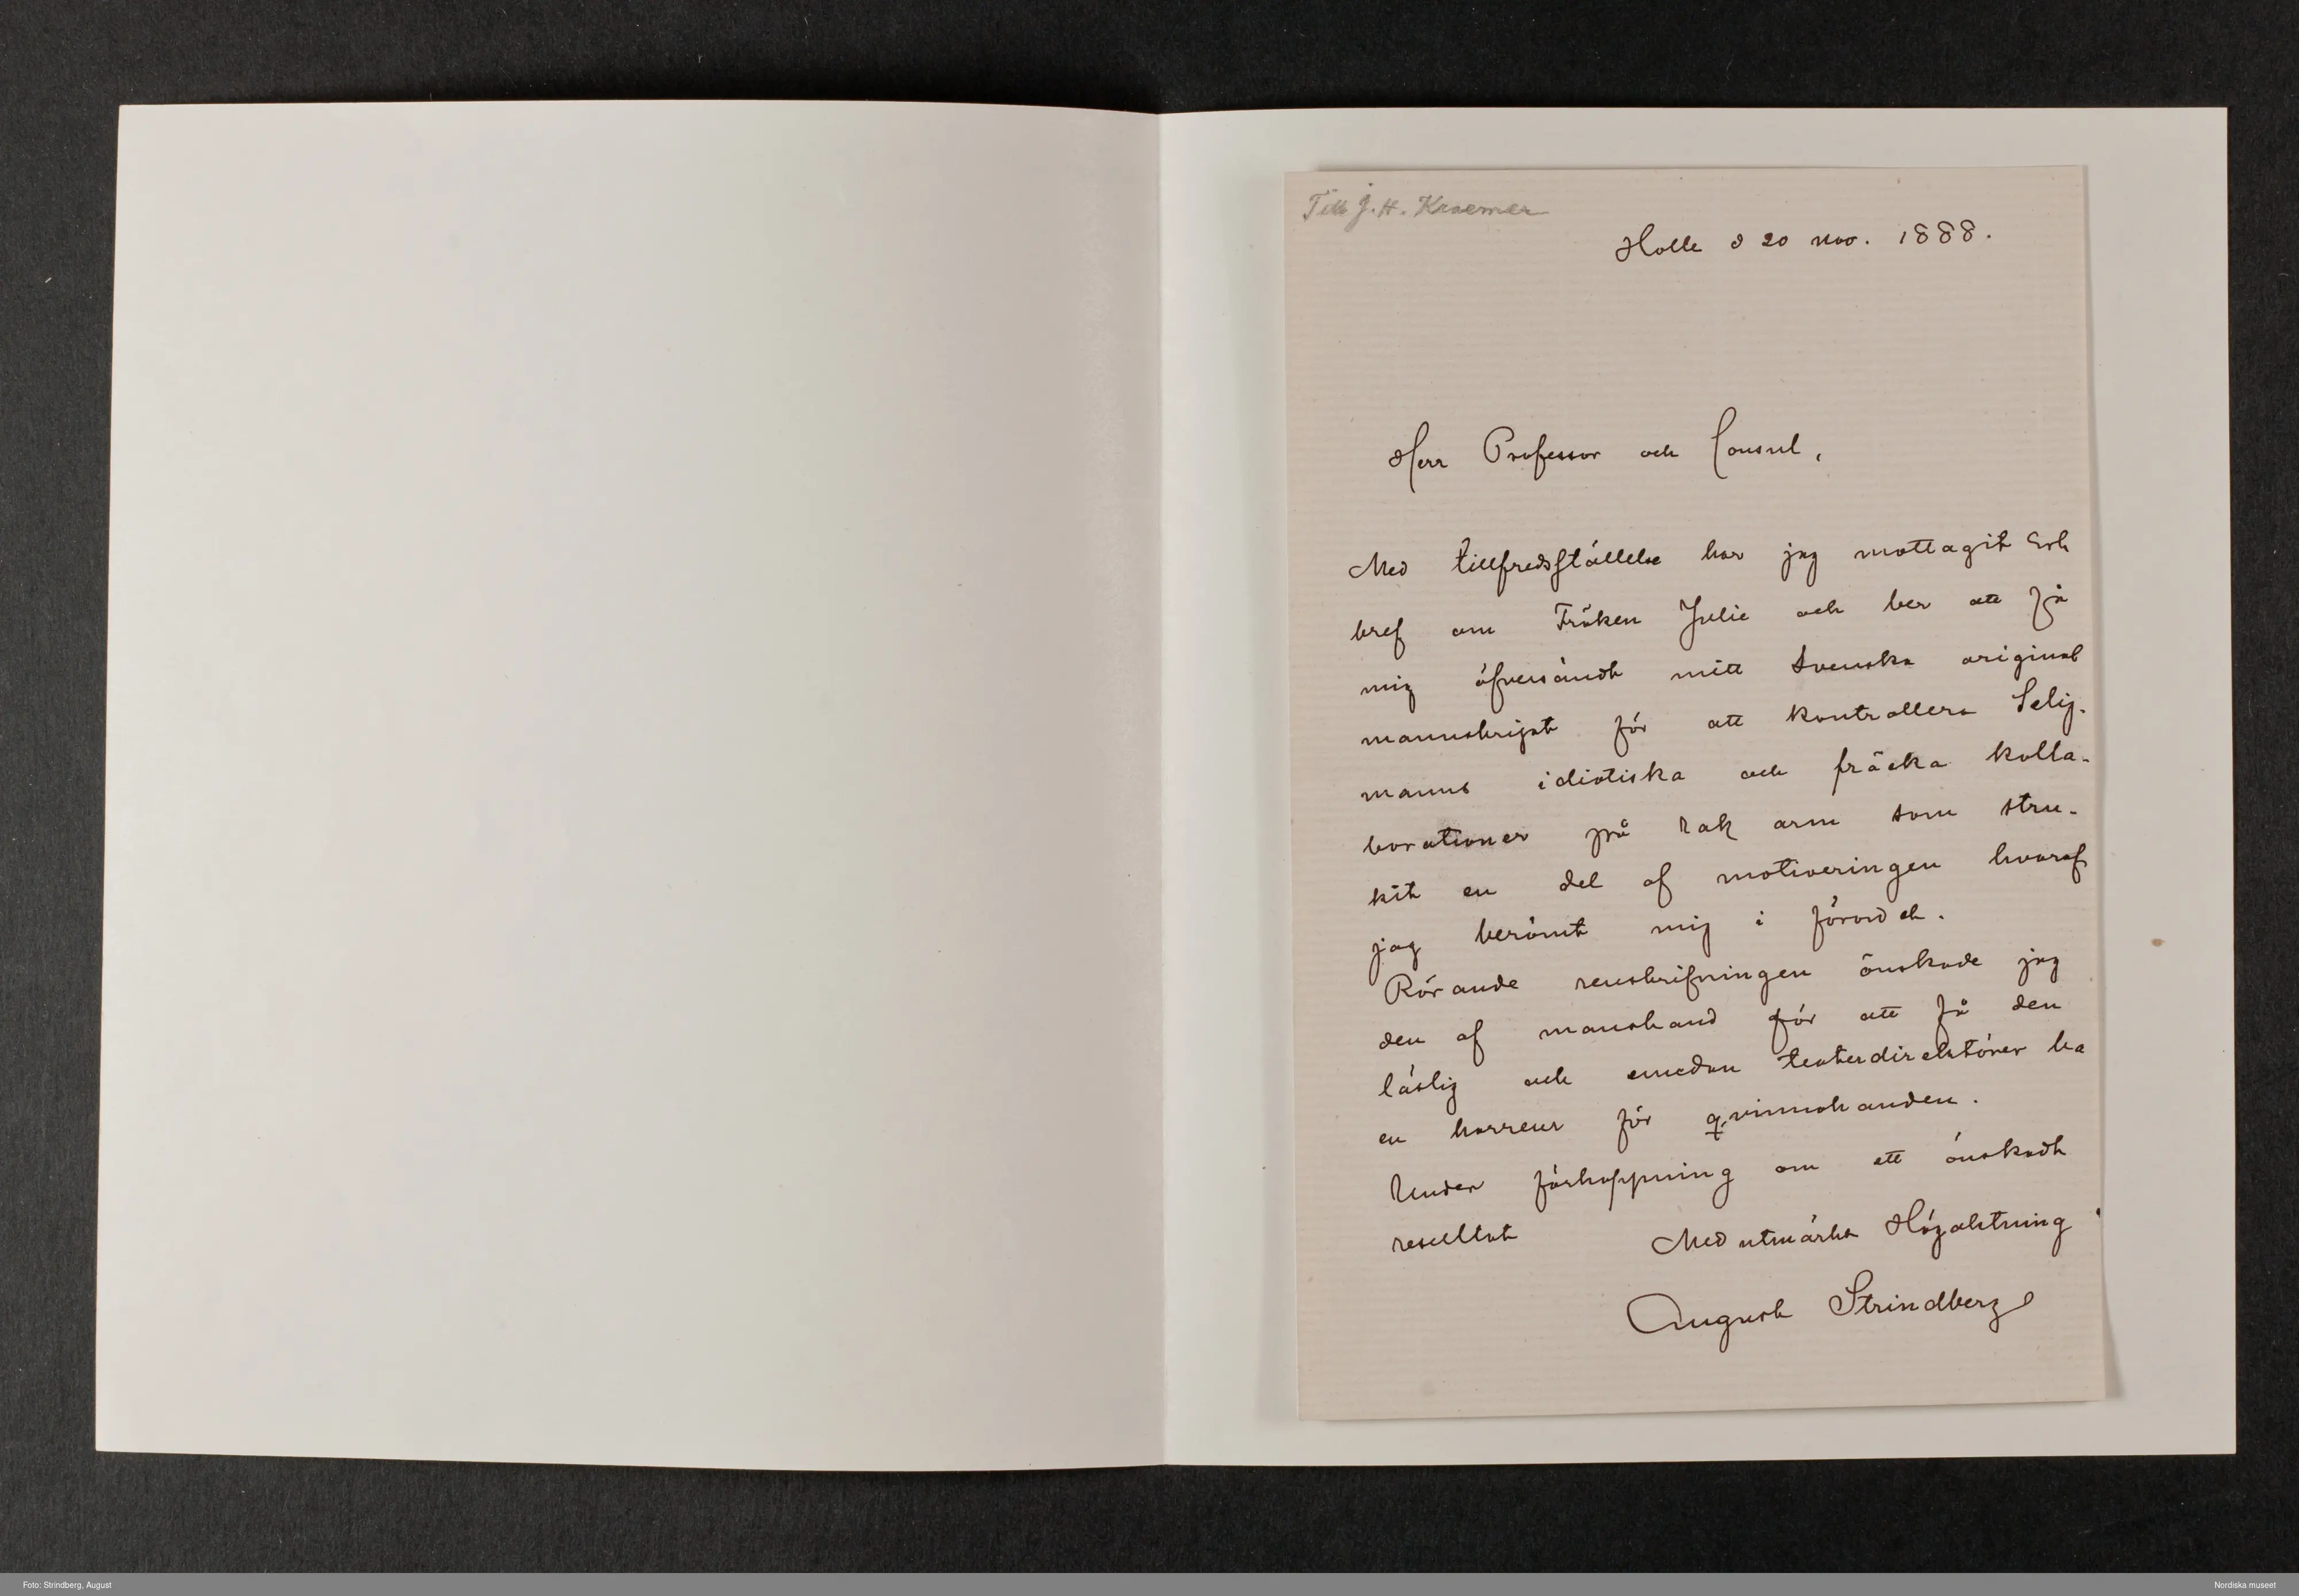 Till J. H. Kraemer
Holte d 20 nov. 1888.
Herr Professor och Consul,
Med tillfredsställelse har jag mottagit Ert
bref om Fröken Julie och ber att få
mig öfversändt mitt svenska original
manuskript för att kontrollera Selig-
manns idiotiska och fräcka kolla-
borationer på rak arm som stru-
kit en del af motiveringen hvaraf
jag berömt mig i förordet.
Rörande renskrifningen önskade jag
den af manshand för att få den
läslig och emedan teaterdirektörer ha
en horreur för qvinnohanden.
Under förhoppning om ett önskadt
resultat Med utmärkt Högaktning
August Strindberg
Foto: Strindberg, August
Nordiska museet